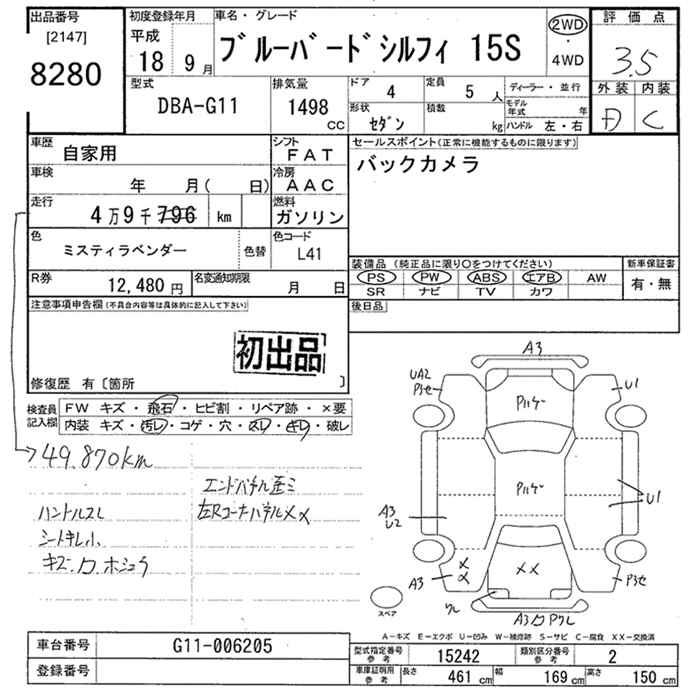 出品番号
[2147]
8280
初度登録年月
平成
18 9月
車名・グレード
ブルーバードシルフィ 15S
2WD
・
4WD
評価点
3.5
外装 内装
D C
型式
DBA-G11
排気量
1498
CC
ドア 4
定員 5 人
形状 セダン
積数 kg
ディーラー・並行
モデル年式 年
ハンドル 左・右
車歴 自家用
シフト FAT
車検 年 月( 日)
冷房 AAC
走行 4万9千796 km
燃料 ガソリン
色 ミスティラベンダー 色替
色コード L41
R券 12,480円
名変通知期限 月 日
セールスポイント(正常に機能するものに限ります)
バックカメラ
装備品(純正品に限り○をつけてください)
PS PW ABS エアB AW
SR ナビ TV カワ
新車保証書
有・無
後日品
注意事項申告欄(不具合内容等は具体的に記入して下さい)
初出品
修復歴 有〔箇所 〕
検査員記入欄
FW キズ・飛石・ヒビ割・リペア跡・×要
内装 キズ・汚レ・コゲ・穴・スレ・キレ・破レ
49,870km
エンドパネル歪ミ
左Rコーナーパネル××
ハンドルスレ
シートキレ小
A3
UA2
P3セ
U1
Pルケー
Pルケー
A3
U2
U1
××
A3
××
P3セ
ワレ
スペア
A-キズ E-エクボ U-凹み W-補修跡 S-サビ C-腐食 XX-交換済
車台番号 G11-006205
登録番号
型式指定番号 参考 15242
類別区分番号 参考 2
車庫証明用 参考
長さ 461 cm
幅 169 cm
高さ 150 cm